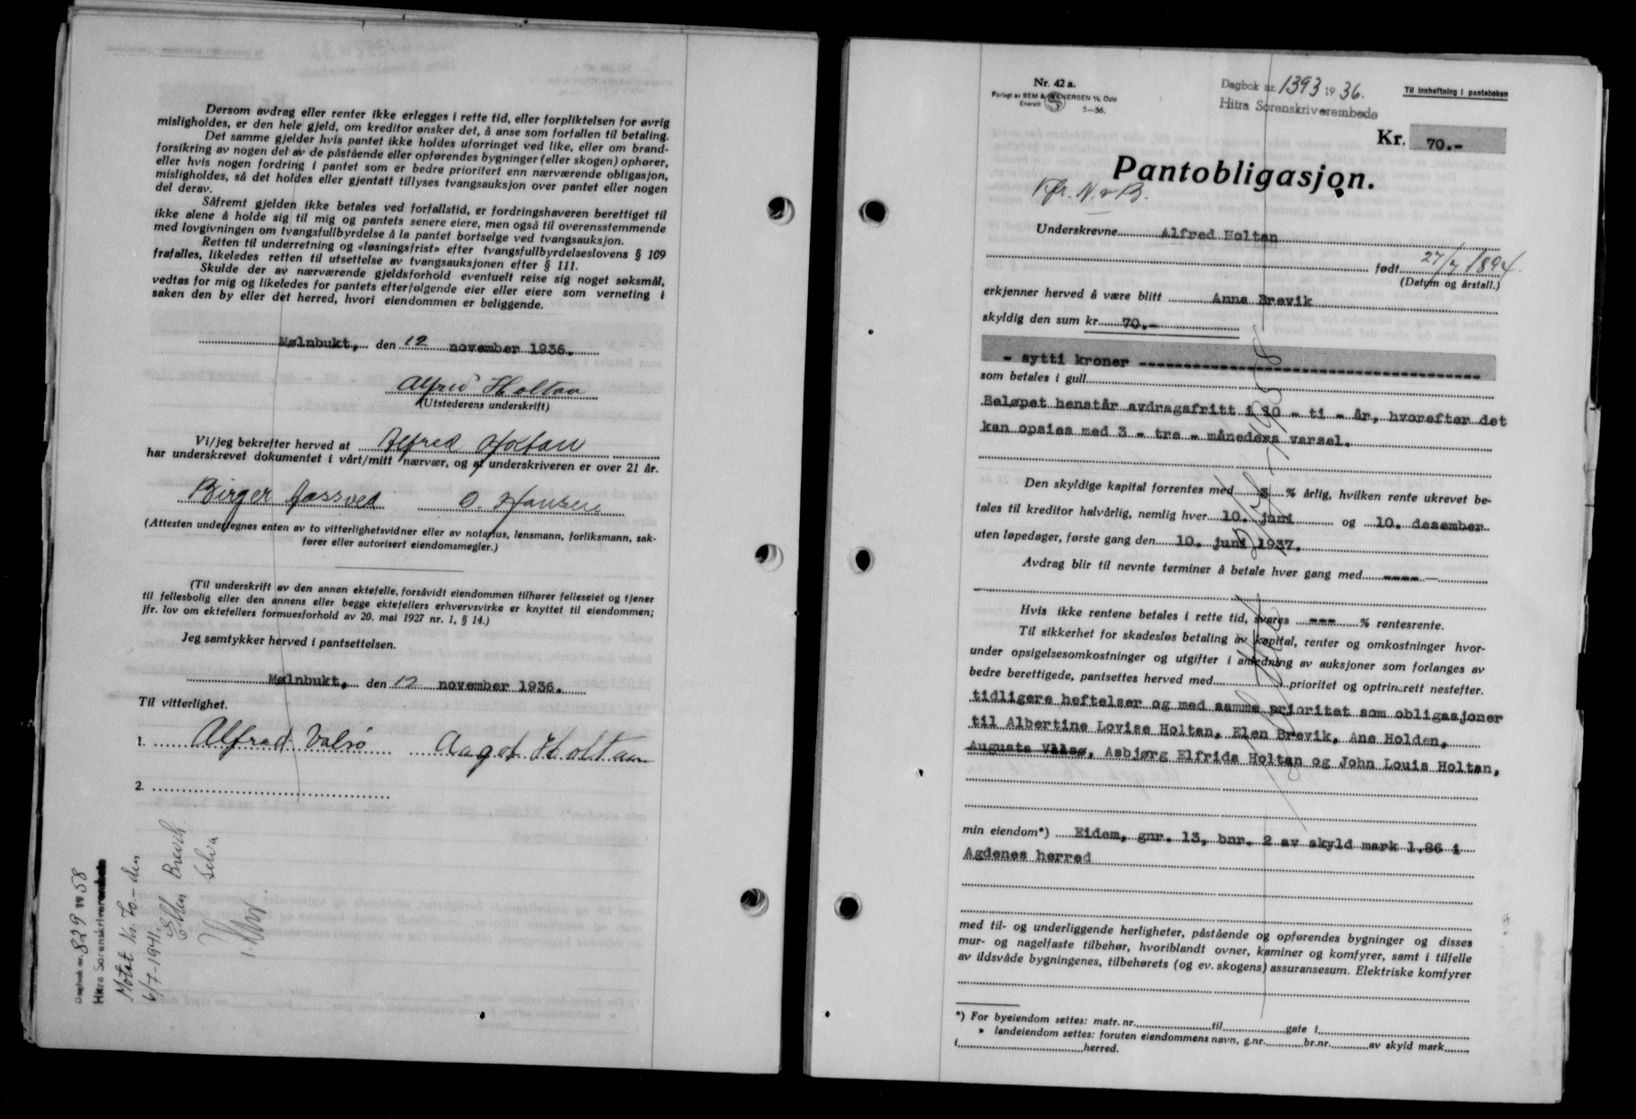 Dersom avdrag eller renter ikke erlegges i rette tid, eller forpliktelsen for øvrig
misligholdes, er den hele gjeld, om kreditor ønsker det, å anse som forfallen til betaling.
Det samme gjelder hvis pantet ikke holdes uforringet ved like, eller om brand-
forsikring av nogen del av de påstående eller opførendes bygninger (eller skogen) ophører,
eller hvis nogen fordring i pantet som er bedre prioritert enn nærværende obligasjon,
misligholdes, så det holdes eller gjentatt tillyses tvangsauksjon over pantet eller nogen
del derav.
Såfremt gjelden ikke betales ved forfallstid, er fordringshaveren berettiget til
ikke alene å holde sig til mig og pantets senere eiere, men også til overensstemmende
med lovgivningen om tvangsfullbyrdelse å la pantet bortselge ved tvangsauksjon.
Retten til underretning og «løsningsfrist» efter tvangsfullbyrdelseslovens § 109
frafalles, likeledes retten til utsettelse av tvangsauksjonen efter § 111.
Skulde der av nærværende gjeldsforhold eventuelt reise sig noget søksmål,
vedtas for mig og likeledes for pantets efterfølgende eier eller eiere som verneting i
saken den by eller det herred, hvori eiendommen er beliggende.
Mølnbukt, den 12 november 1936.
Alfred Holtan
(Utstederens underskrift)
Vi/jeg bekrefter herved at Alfred Holtan
har underskrevet dokumentet i vårt/mitt nærvær, og at underskriveren er over 21 år.
Birger O. Hansen
(Attesten undertegnes enten av to vitterlighetsvidner eller av notarius, lensmann, forliksmann, sak-
fører eller autorisert eiendomsmegler.)
(Til underskrift av den annen ektefelle, forsåvidt eiendommen tilhører felleseiet og tjener
til fellesbolig eller den annens eller begge ektefellers erhvervsvirke er knyttet til eiendommen;
jfr. lov om ektefellers formuesforhold av 20. mai 1927 nr. 1, § 14.)
Jeg samtykker herved i pantsettelsen.
Mølnbukt, den 12 november 1936.
Til vitterlighet.
1. Alfred Valsø Aagot Holtan
2.
Dagbok nr. 829 1958
Hitra Sorenskriverembede
Motat Kr. 70- den
6/7-1941.
Ellen Brevik
Selva
Nr. 42 a.
Forlagt av SEM & STENERSEN A/S, Oslo
Enerett S 5—36.
Dagbok nr. 1393 1936.
Hitra Sorenskriverembede
Til innheftning i panteboken
Kr. 70.-
Pantobligasjon.
Underskrevne Alfred Holtan
født 27/7 1894.
(Datum og årstall.)
erkjenner herved å være blitt Anna Brevik
skyldig den sum kr. 70.-
- sytti kroner -
som betales i gull
Beløpet henstår avdragsfritt i 10 - ti - år, hvorefter det
kan opsies med 3 - tre - måneders varsel.
Den skyldige kapital forrentes med 3 % årlig, hvilken rente ukrevet be-
tales til kreditor halvårlig, nemlig hver 10. juni og 10. desember
uten løpedager, første gang den 10. juni 1937.
Avdrag blir til nevnte terminer å betale hver gang med ---- —
Hvis ikke rentene betales i rette tid, svares --- % rentesrente.
Til sikkerhet for skadesløs betaling av kapital, renter og omkostninger hvor-
under opsigelsesomkostninger og utgifter i anledning av auksjoner som forlanges av
bedre berettigede, pantsettes herved med prioritet og optrinsrett nestefter.
tidligere heftelser og med samme prioritet som obligasjoner
til Albertine Lovise Holtan, Elen Brevik, Ane Holden,
Augusta Valsø, Asbjørg Elfrida Holtan og John Louis Holtan,
min eiendom*) Eidem, gnr. 13, bnr. 2 av skyld mark 1.86 i
Agdenes herred
med til- og underliggende herligheter, påstående og opførendes bygninger og disses
mur- og nagelfaste tilbehør, hvoriblandt ovner, kaminer og komfyrer, samt i tilfelle
av ildsvåde bygningenes, tilbehørets (og ev. skogens) assuransesum. Elektriske komfyrer
*) For byeiendom settes: matr. nr. til gate i
» landeiendom settes: foruten eiendommens navn, g.nr. br.nr. av skyld mark
i herred.